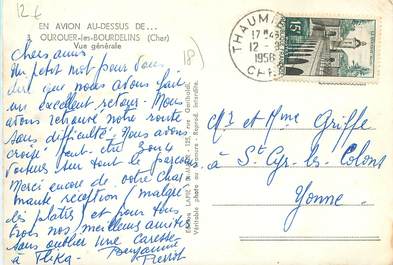 12 €
EN AVION AU-DESSUS DE...
3 OUROUER-les-BOURDELINS (Cher)
Vue générale
18
Chers amis
Un petit mot pour vous
dire que nous avons fait
un excellent retour. Nous
avons retrouvé notre route
sans difficulté. Nous avons
croisé peut-être
voitures sur tout le parcours
Merci encore de votre char
mante réception (malgré
les platrés) et pour tous
trois nos meilleurs amitiés
sans oublier une caresse
à
Benjamine
Pierrot
LAPIE
Véritable photo au bromure Reprod. interdite.
THAUMI
17 H
12 -
1956
CHER
15F
Mr et Mme Griffe
à St Cyr-les-Colons
Yonne